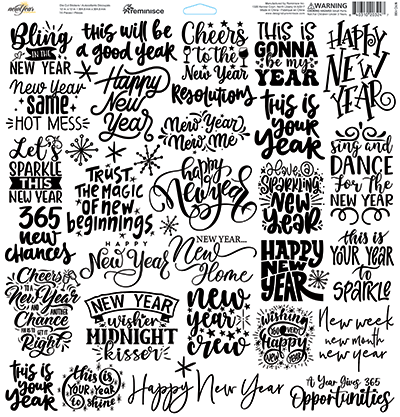 Reminisce
WARNING
Bling
IN THE
NEW YEAR
this will be
a good year
Cheers
TO THE
New
YEAR
THIS IS
GONNA
be my
YEAR
HAPPY
NEW
YEAR
New Year
SAME
HOT MESS
Happy
New
Year
Resolutions
this is
your
year
New Year
New Me
Let's
SPARKLE
THIS
NEW YEAR
TRUST
THE MAGIC
OF NEW
beginnings
happy
New year
Have a
SPARKLING
NEW
YEAR
sing and
DANCE
FOR the
NEW YEAR
365
new
chances
HAPPY
New Year
NEW YEAR...
New
Home
HAPPY
NEW
YEAR
this is
YOUR
YEAR
to
SPARKLE
Cheers
TO A
New Year
AND ANOTHER
Chance
FOR US TO
Get it
Right
NEW YEAR
wisher
MIDNIGHT
kisser
new
year
crew
Wishing
YOU A VERY
Happy
NEW
YEAR
New week
new month
new year
this is
your
year
this is
YOUR Year
to shine
Happy New Year
A Year Gives 365
Opportunities